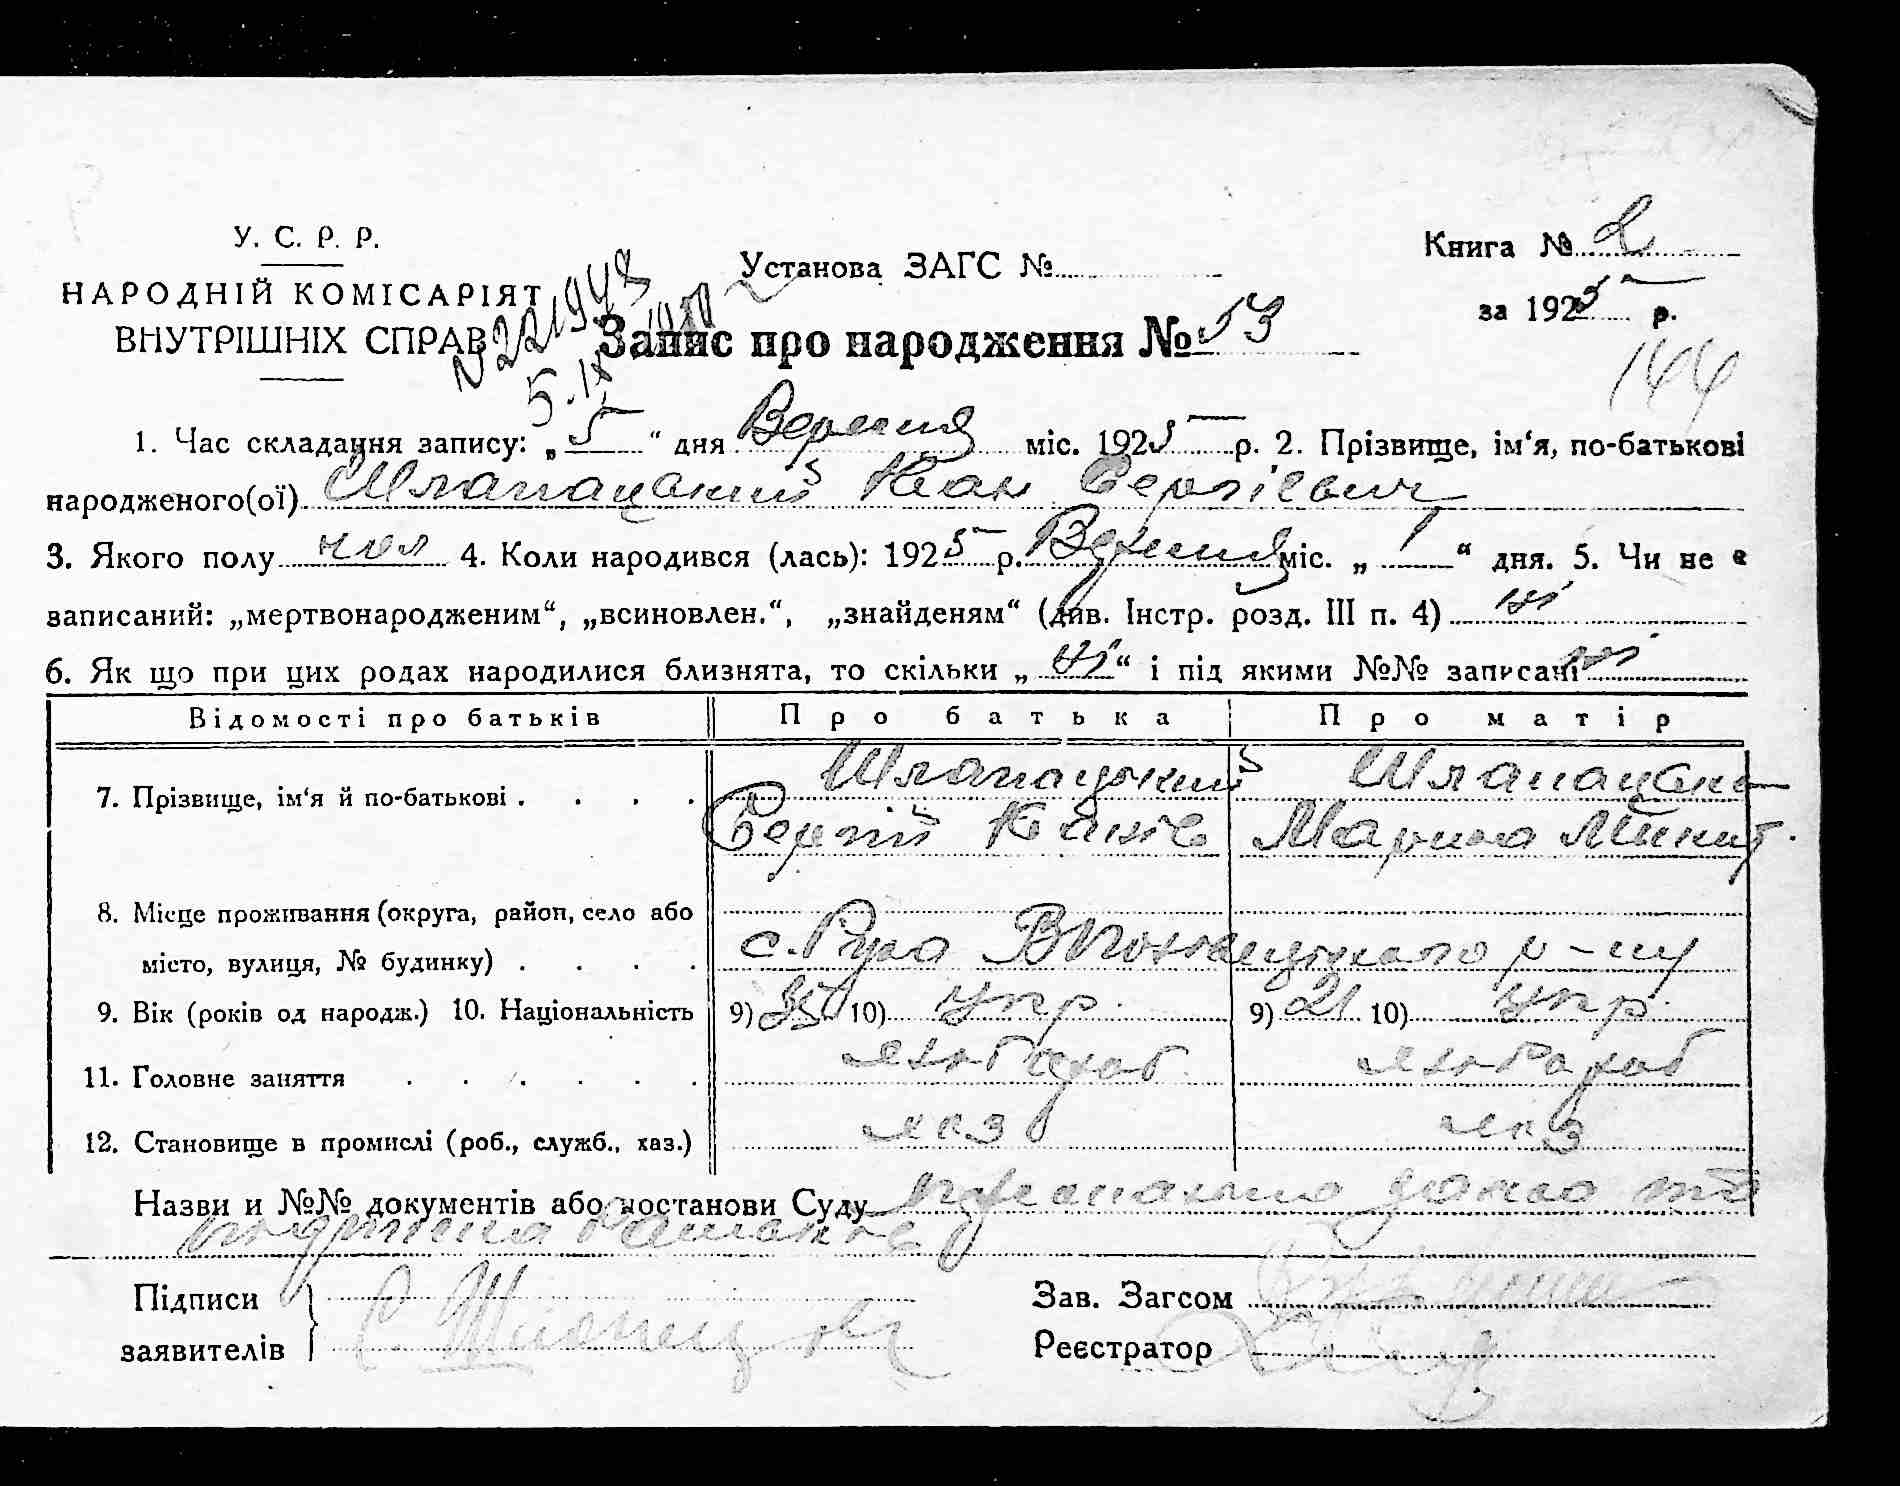 У. С. Р. Р.
НАРОДНІЙ КОМІСАРІЯТ
ВНУТРІШНІХ СПРАВ
Установа ЗАГС №
Книга № 2
за 1925 р.
Запис про народження № 53
144
1. Час складання запису: „ 5 “ дня Вересня міс. 1925 р. 2. Прізвище, ім‘я, по-батькові
народженого(ої) Шлапацький Іван Сергієвич
3. Якого полу чол 4. Коли народився (лась): 1925 р. Вересня міс. „ 1 “ дня. 5. Чи не є
записаний: „мертвонародженим“, „всиновлен.“, „знайденям“ (див. Інстр. розд. III п. 4) ні
6. Як що при цих родах народилися близнята, то скільки „ ні “ і під якими №№ записані ні
Відомості про батьків Про батька Про матір
7. Прізвище, ім‘я й по-батькові . . . . Шлапацький Шлапацька
Сергій Іванів Марина Микит.
8. Місце проживання (округа, район, село або
місто, вулиця, № будинку) . . . . с. Руда р-ну
9. Вік (років од народж.) 10. Національність 9) 10) укр. 9) 21 10) укр.
11. Головне заняття . . . . . . хлібороб хлібороб
12. Становище в промислі (роб., служб., хаз.) хаз хаз
Назви и №№ документів або постанови Суду персонально та
Підписи
заявителів
Зав. Загсом
Реєстратор